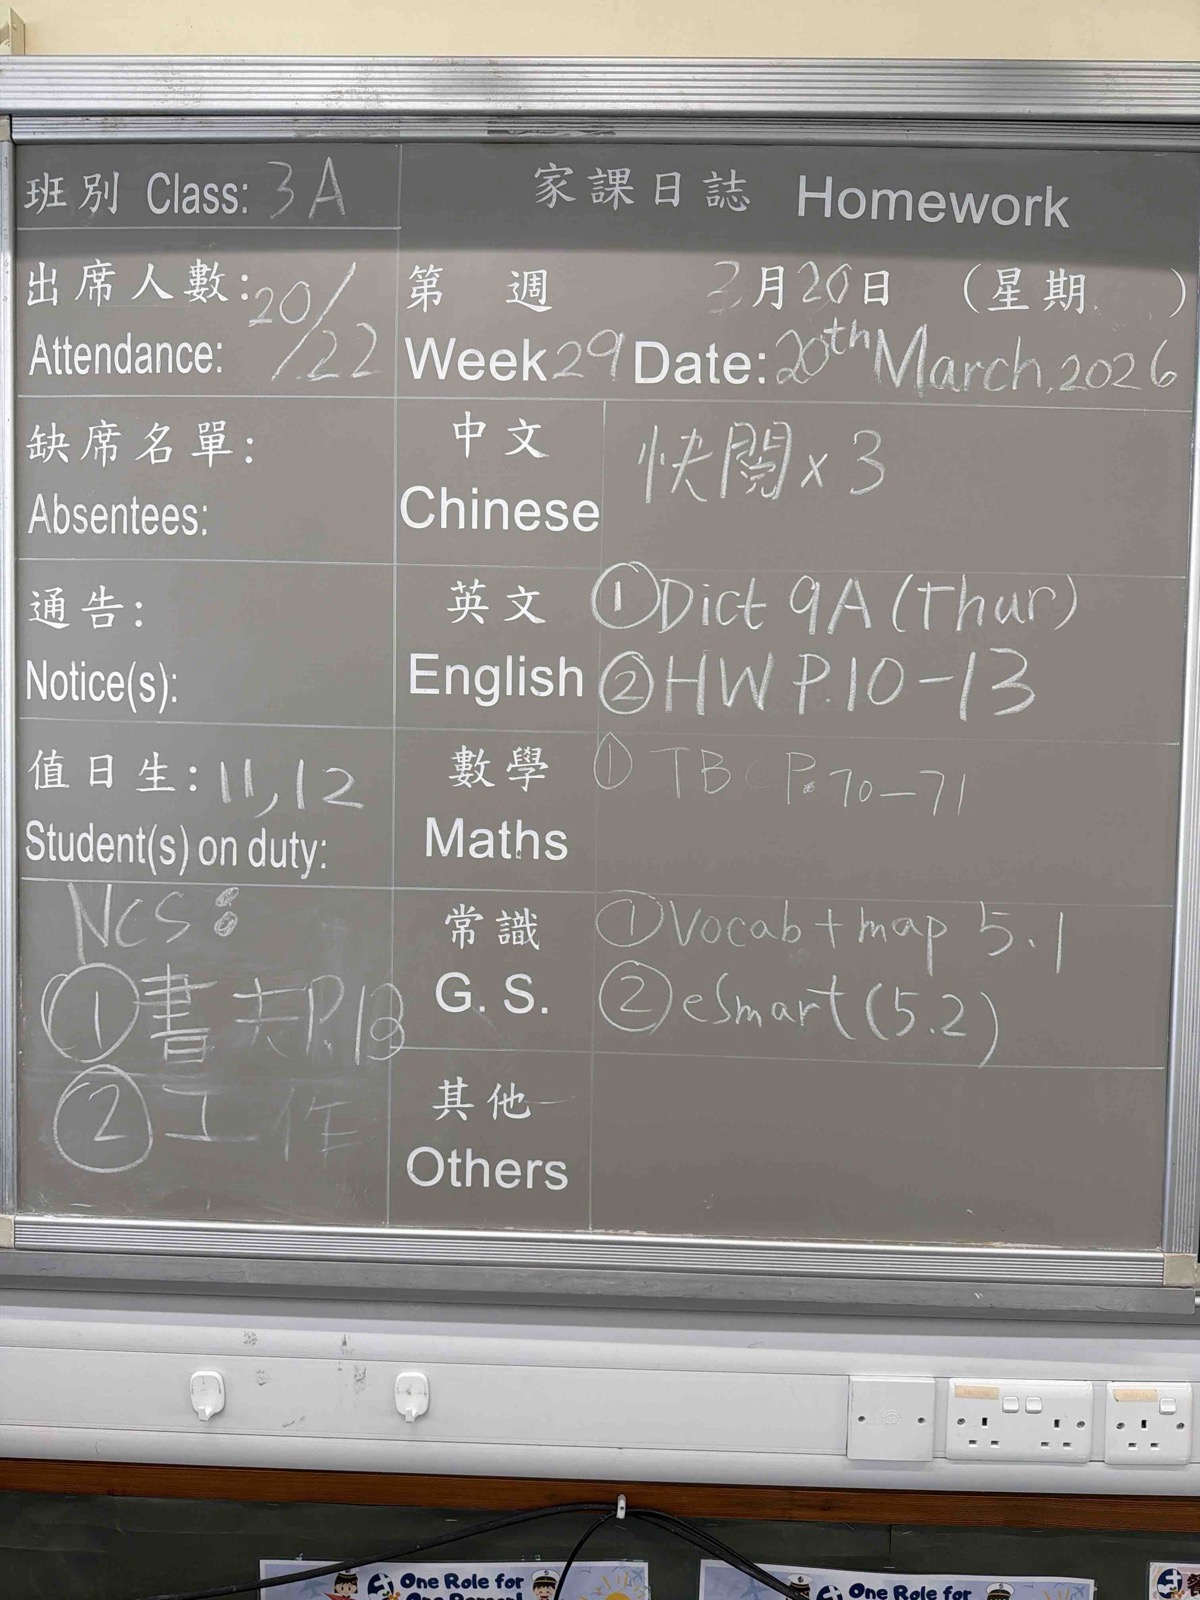 班別 Class: 3A
家課日誌 Homework
出席人數: 20/22
Attendance:
第 週 3月20日 (星期 )
Week 29 Date: 20th March, 2026
缺席名單:
Absentees:
中文
Chinese
快閱 x 3
通告:
Notice(s):
英文
English
① Dict 9A (Thur)
② HW P.10-13
值日生: 11, 12
Student(s) on duty:
數學
Maths
① TB P.70-71
NCS:
① 書 P.13
② 工作
常識
G. S.
① Vocab + map 5.1
② eSmart (5.2)
其他
Others
One Role for
One Role for